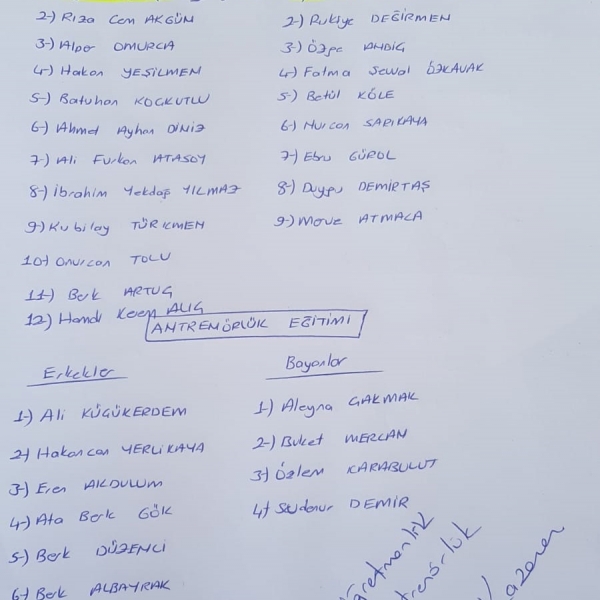 2-) Rıza Cem AKGÜN
3-) Alper OMURCA
4-) Hakan YEŞİLMEN
5-) Batuhan KOCKUTLU
6-) Ahmet Ayhan DİNİZ
7-) Ali Furkan ATASOY
8-) İbrahim Yekdaş YILMAZ
9-) Kubilay TÜRKMEN
10-) Onurcan TOLU
11-) Berk ARTUĞ
12-) Hamdi Kerem ALIÇ
2-) Rukiye DEĞİRMEN
3-) Özge
4-) Fatma Sewal ÖZKAVAK
5-) Betül KÖLE
6-) Nurcan SARIKAYA
7-) Ebru GÜROL
8-) Duygu DEMİRTAŞ
9-) Merve ATMACA
ANTREMÖRLÜK EĞİTİMİ
Erkekler
1-) Ali KÜÇÜKERDEM
2-) Hakancan YERLİKAYA
3-) Eren AKDULUM
4-) Ata Berk GÖK
5-) Berk DÜZENCİ
6-) Berk ALBAYRAK
Bayanlar
1-) Aleyna ÇAKMAK
2-) Buket MERCAN
3-) Özlem KARABULUT
4-) Sudenur DEMİR
ğretmenlik
trenörlük
azanan